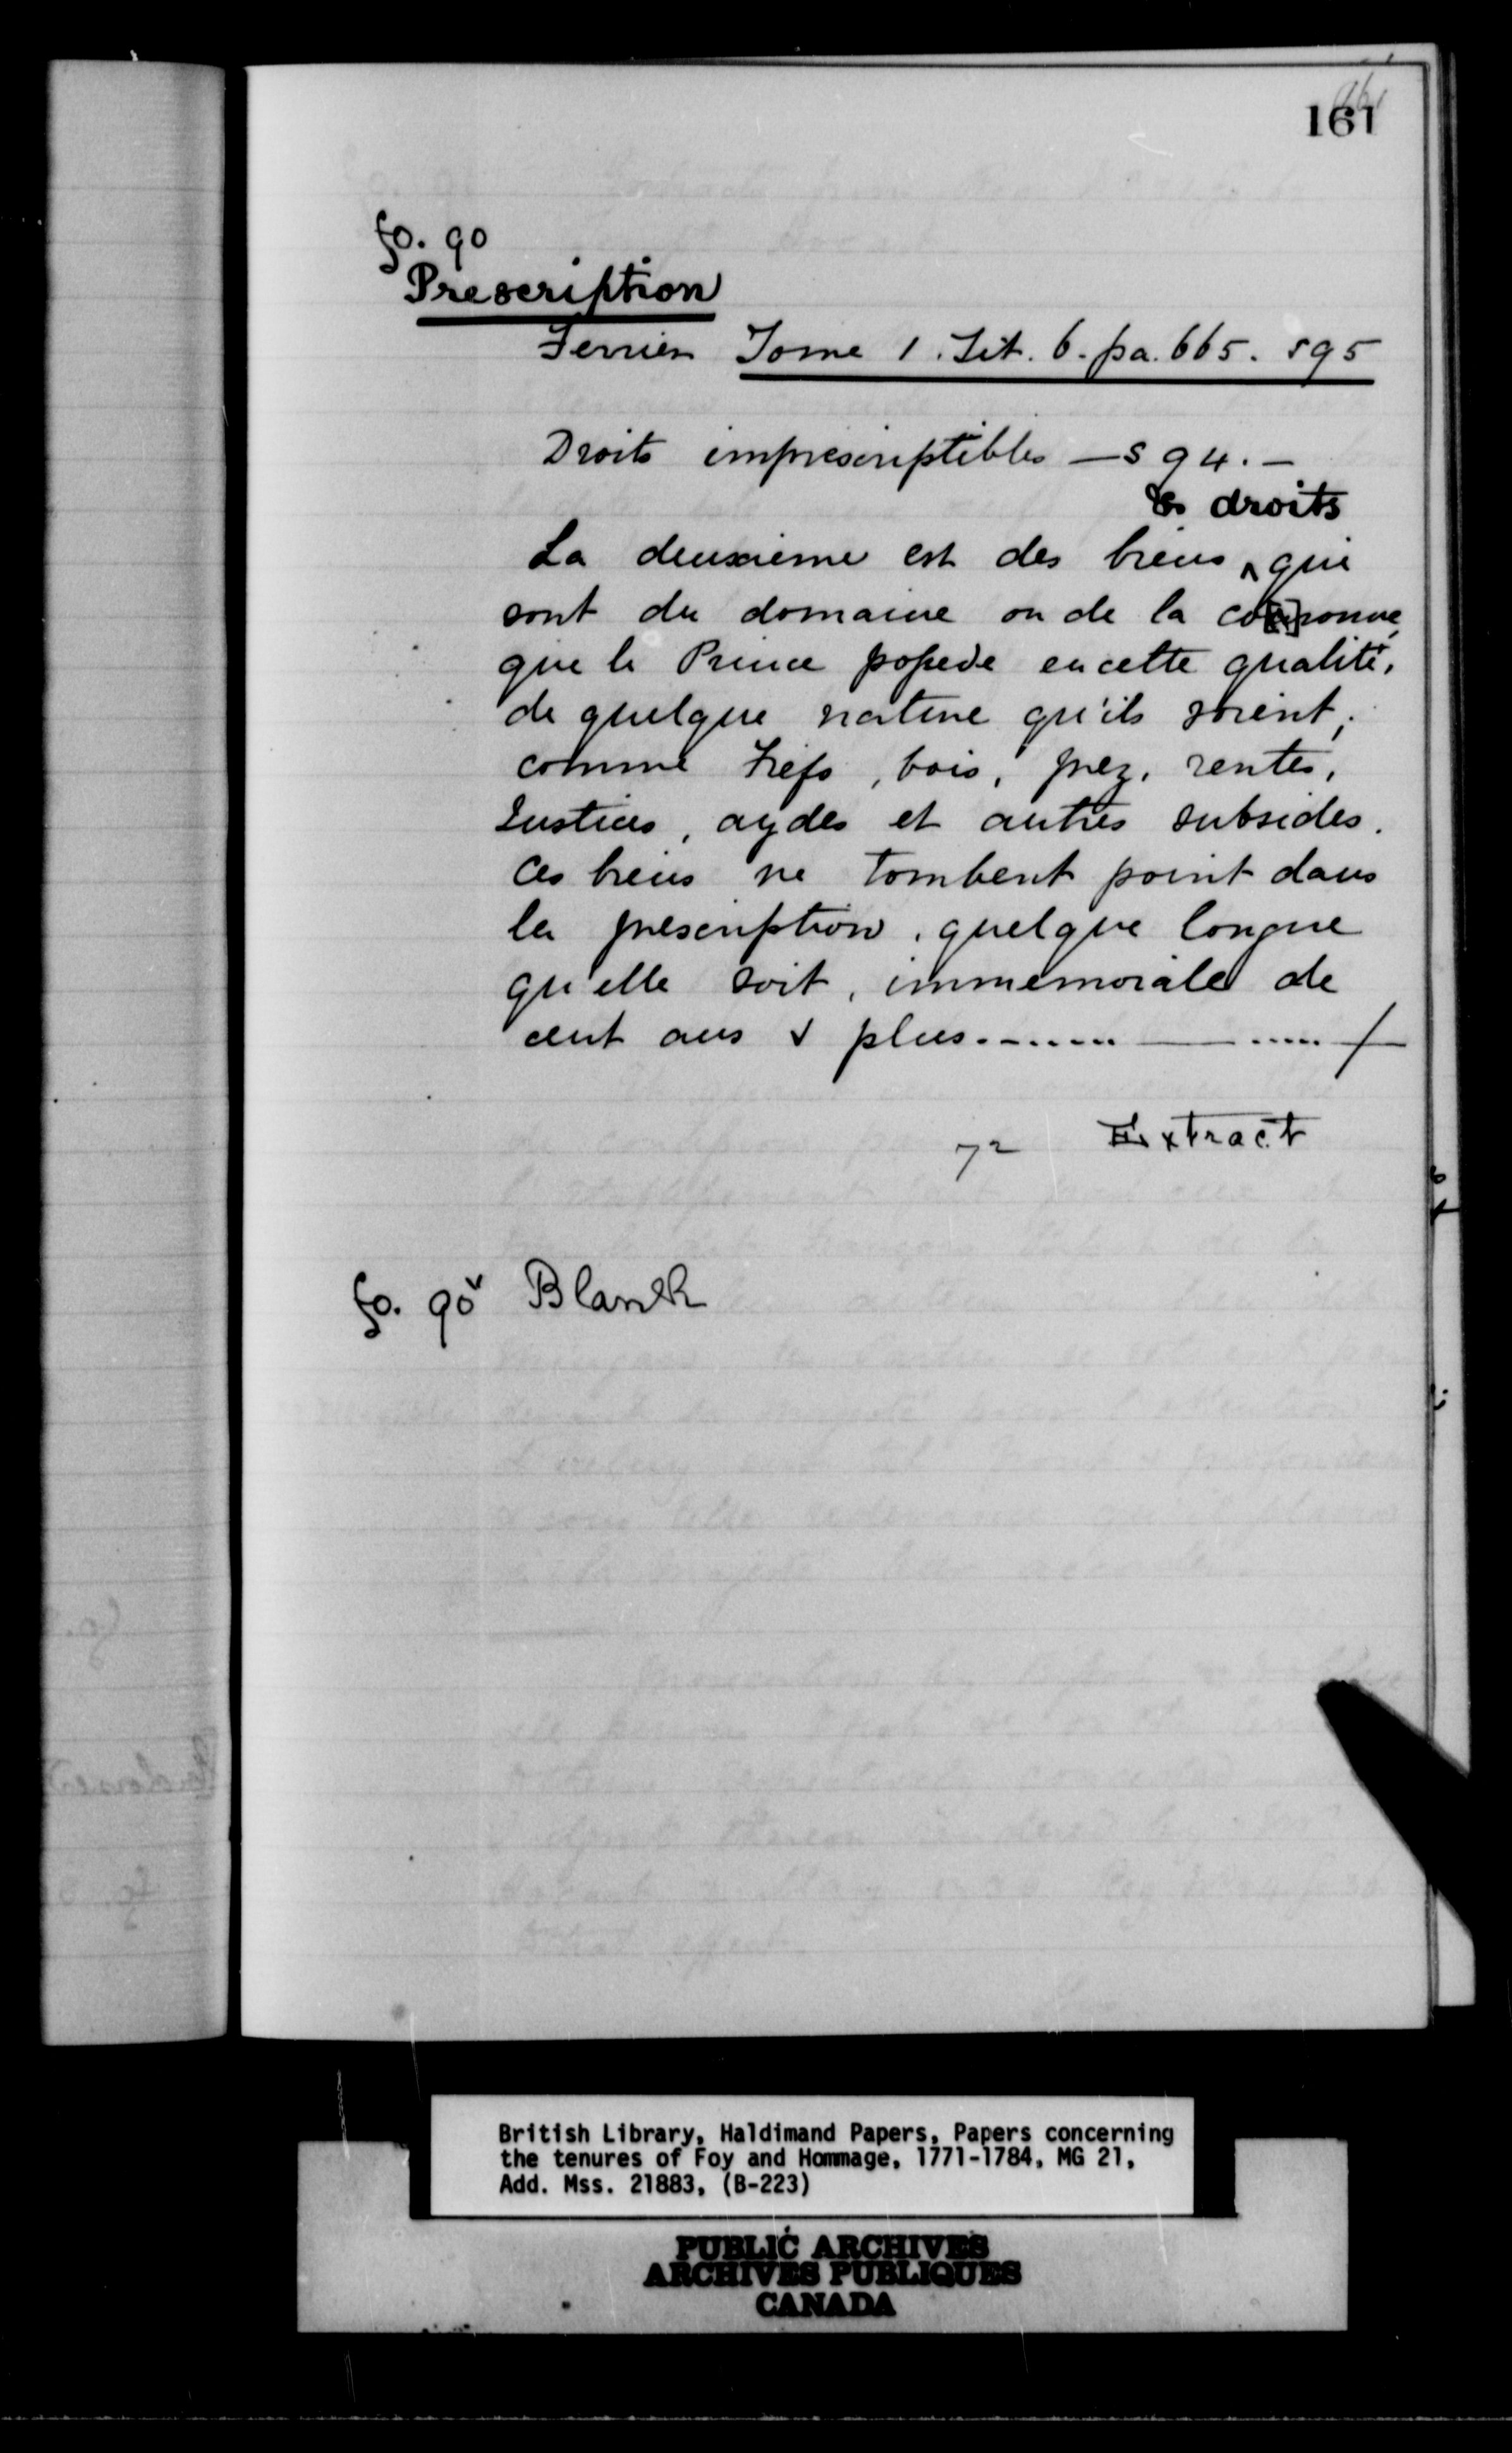 161
fo. 90
Prescription
Ferrier Tome 1. Tit. 6. pa. 665. 595
Droits imprescriptibles — S 94. —
& droits
La deuxième est des biens ^ qui
sont du domaine ou de la co[u]ronne
que le Prince possede en cette qualité,
de quelque nature qu'ils soient,
comme fiefs, bois, prez, rentes,
Justices, aydes et autres subsides.
Ces biens ne tombent point dans
la prescription, quelque longue
qu'elle soit, immemoriale de
cent ans & plus.
72 Extract
fo. 90v Blank
British Library, Haldimand Papers, Papers concerning
the tenures of Foy and Hommage, 1771-1784, MG 21,
Add. Mss. 21883, (B-223)
PUBLIC ARCHIVES
ARCHIVES PUBLIQUES
CANADA